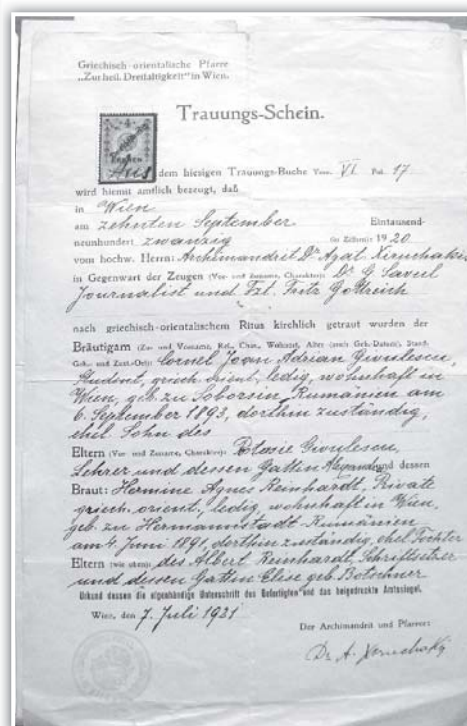 Griechisch-orientalische Pfarre
„Zur heil. Dreifaltigkeit" in Wien.
Trauungs-Schein.
Aus dem hiesigen Trauungs-Buche Tom. VI Fol. 17
wird hiemit amtlich bezeugt, daß
in Wien
am zehnten September Eintausend-
neunhundert zwanzig (in Ziffern): 1920
vom hochw. Herrn: Archimandrit Dr
in Gegenwart der Zeugen (Vor- und Zuname, Charakter): Dr G.
Journalist und Fritz Gottreich
nach griechisch-orientalischem Ritus kirchlich getraut wurden der
Bräutigam Cornel Joan Adrian Givulescu,
Student, griech. orient., ledig, wohnhaft in
Wien, geb. zu Soborsin, Rumänien am
6. September 1893, dorthin zuständig,
ehel. Sohn des
Eltern (Vor- und Zuname, Charakter): Givulescu,
Lehrer und dessen Gattin und dessen
Braut: Hermine Agnes Reinhardt, Private
griech. orient., ledig, wohnhaft in Wien,
geb. zu Hermannstadt-Rumänien
am 4. Juni 1891, dorthin zuständig, ehel. Tochter
Eltern (wie oben): des Albert Reinhardt, Schriftsetzer
und dessen Gattin Elise geb. Botschner
Urkund dessen die eigenhändige Unterschrift des Gefertigten und das beigedruckte Amtssiegel.
Wien, den 7. Juli 1921
Der Archimandrit und Pfarrer:
Dr. A.